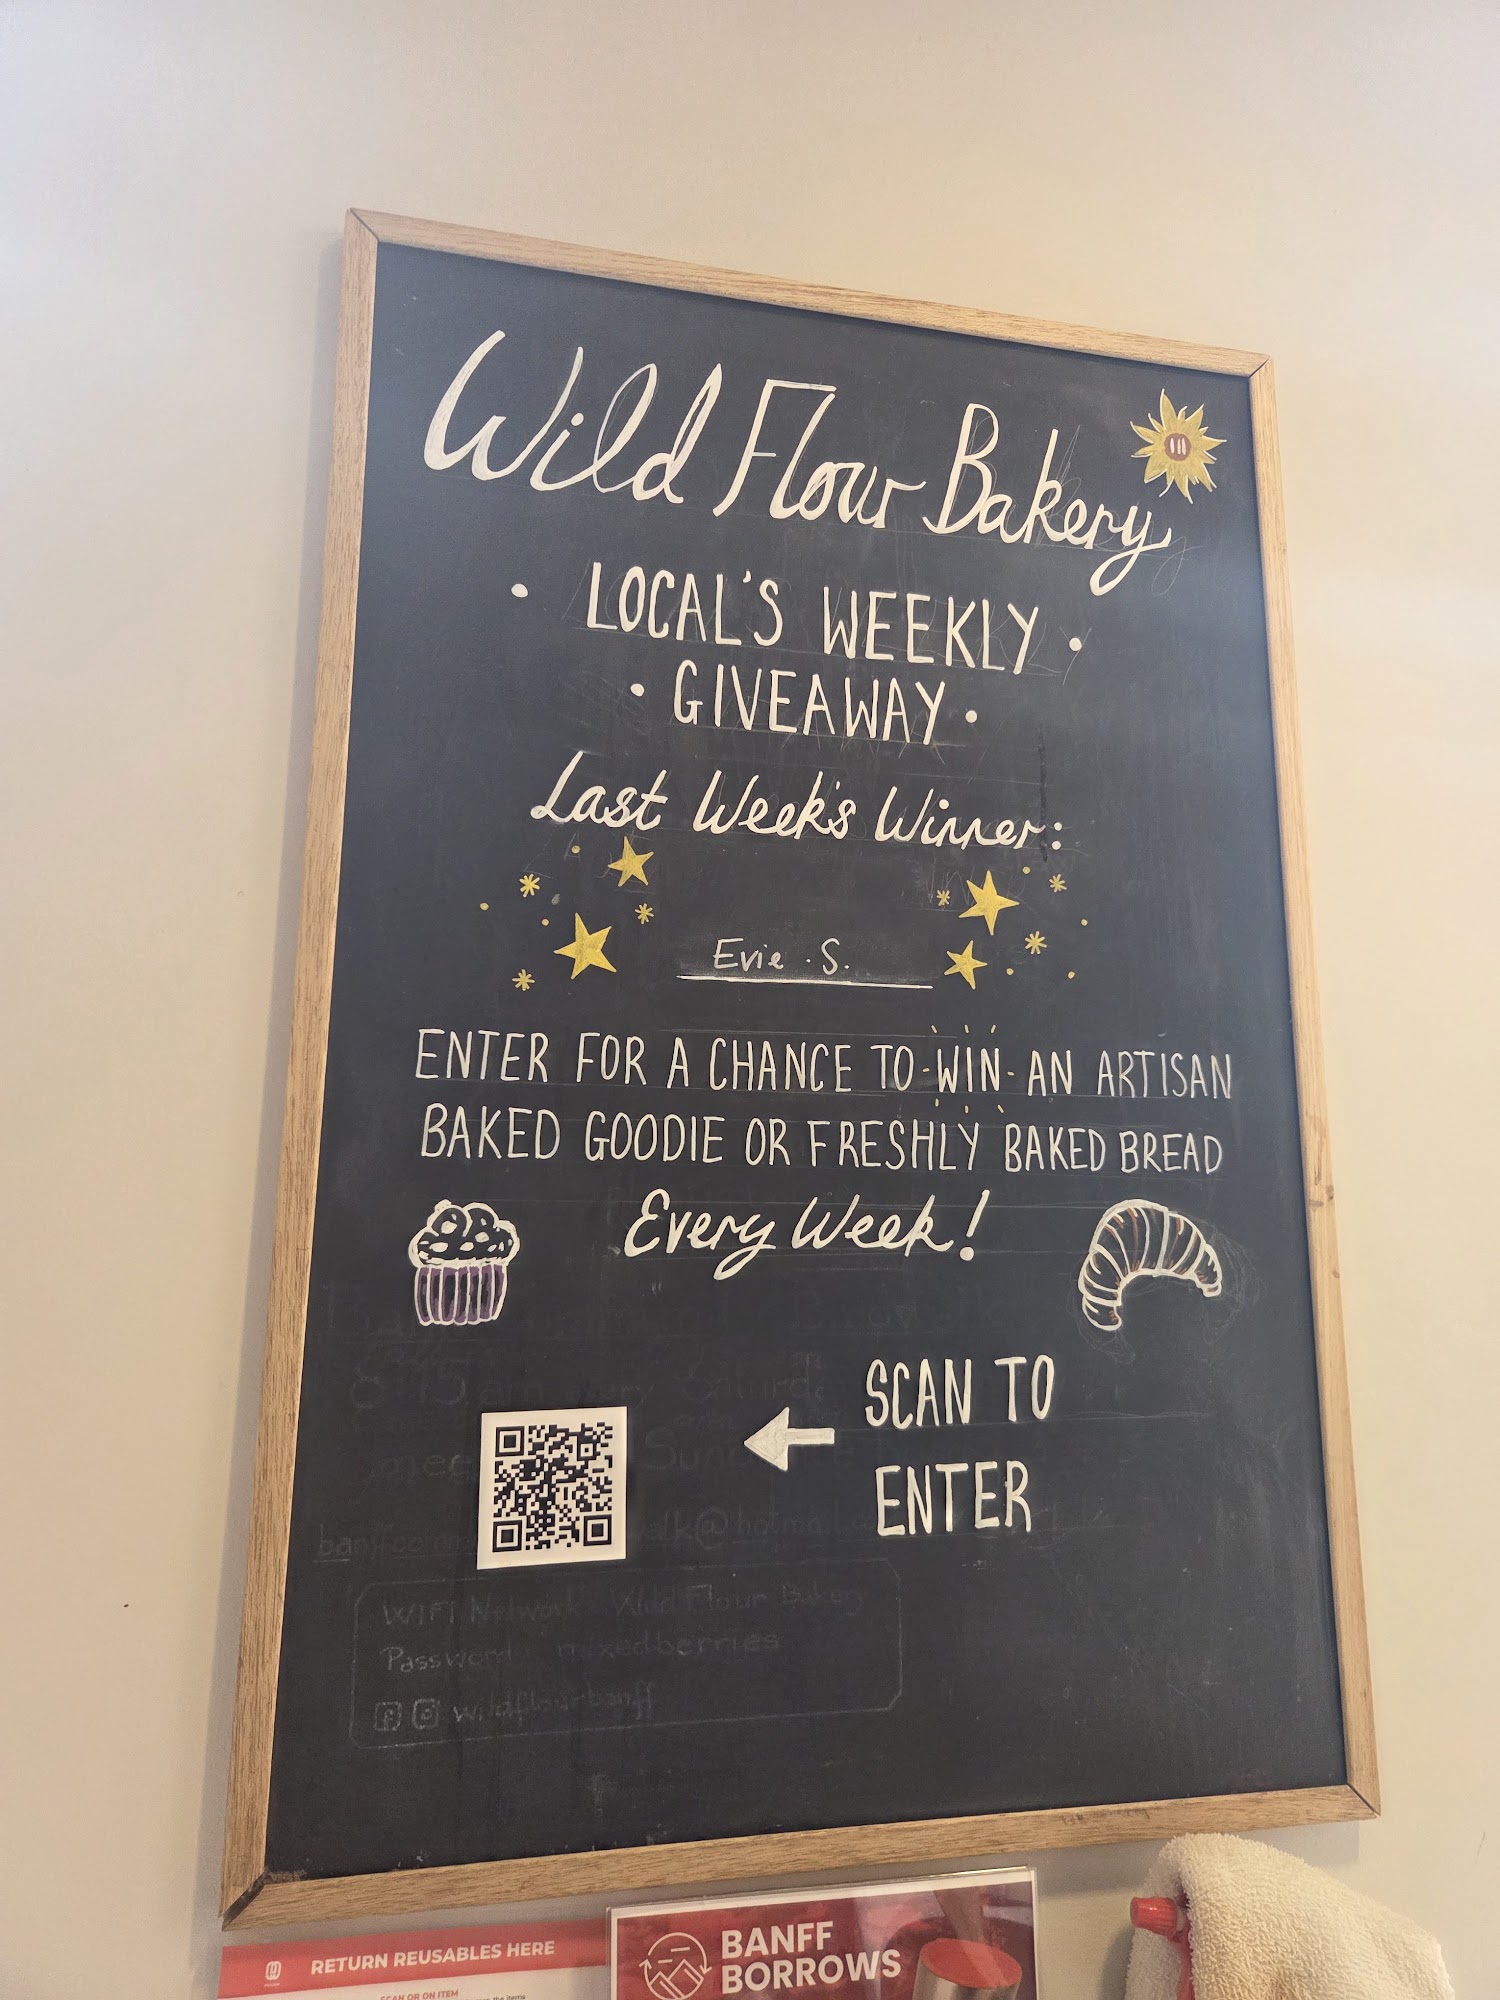 Wild Flour Bakery
• LOCAL'S WEEKLY •
• GIVEAWAY •
Last Week's Winner:
Evie . S.
ENTER FOR A CHANCE TO -WIN- AN ARTISAN
BAKED GOODIE OR FRESHLY BAKED BREAD
Every Week!
SCAN TO
ENTER
WIFI Network Wild Flour Bakery
Password
wildflourbanff
RETURN REUSABLES HERE
SCAN OR ON ITEM
BANFF
BORROWS